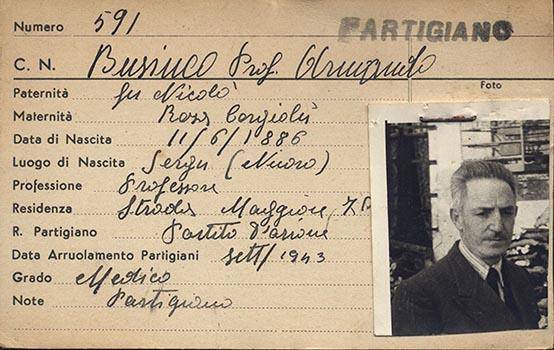 Numero 591
PARTIGIANO
C. N. Businco Prof. Armando
Foto
Paternità fu Nicolò
Maternità Rosa Corgiolu
Data di Nascita 11/6/1886
Luogo di Nascita Jerzu (Nuoro)
Professione Professore
Residenza Strada Maggiore,
R. Partigiano Partito d'azione
Data Arruolamento Partigiani sett/1943
Grado Medico
Note Partigiano